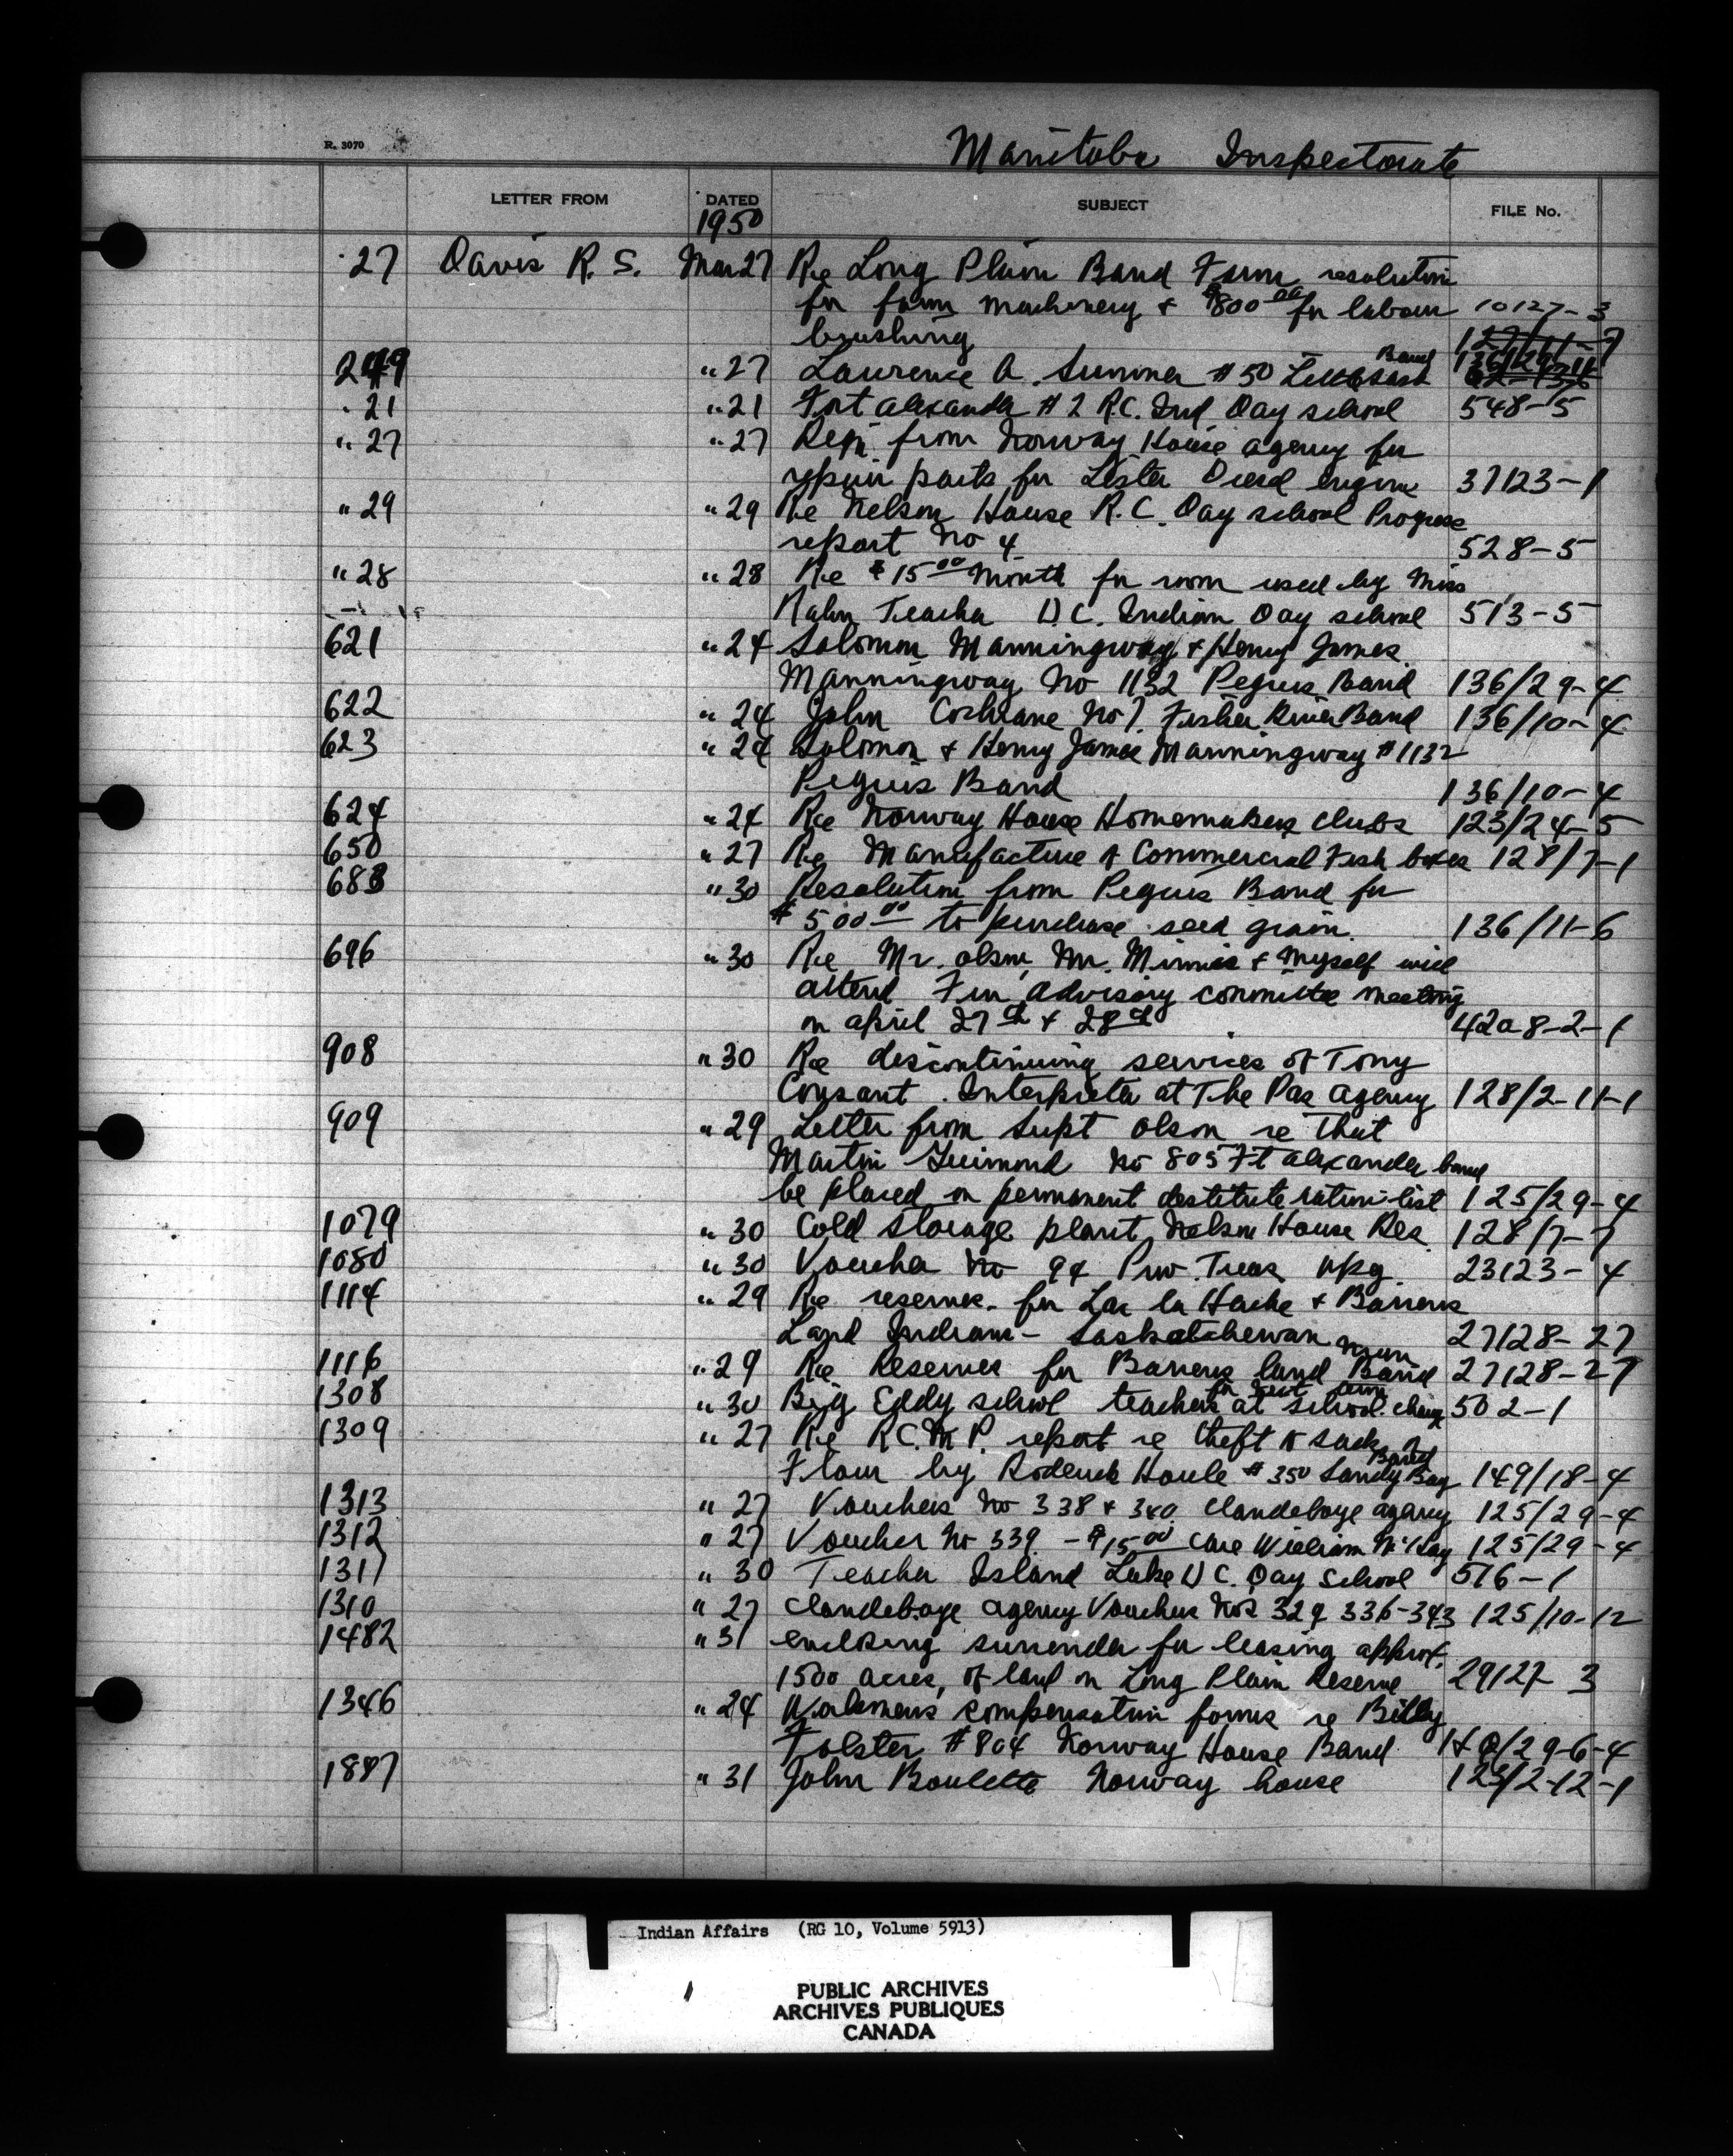 Manitoba Inspectorate
R. 3070
LETTER FROM DATED SUBJECT FILE No.
1950
27 Davis R. S. Mar 27 Re Long Plain Band Farm resolution
for farm machinery & $800 00 for labour 10127-3
brushing
249 " 27 Lawrence A. Sumner # 50 Band
21 " 21 Fort Alexander # 2 R.C. Ind Day school 548-5
" 27 " 27 Reqn from Norway House agency for
repair parts for Lister Diesel engine 37123-1
" 29 " 29 Re Nelson House R.C. Day school Progress
report No 4 528-5
" 28 " 28 Re $15 00 month for room used by Miss
Teacher Indian Day school 513-5
621 " 24 Solomon Manningway & Henry James
Manningway No 1132 Peguis Band 136/29-4
622 " 24 John Cochrane No 7 Fisher River Band 136/10-4
623 " 24 Solomon & Henry James Manningway # 1132
Peguis Band 136/10-4
624 " 24 Re Norway House Homemakers clubs 123/24-5
650 " 27 Re Manufacture of Commercial Fish boxes 128/7-1
683 " 30 Resolution from Peguis Band for
$500 00 to purchase seed grain. 136/11-6
696 " 30 Re Mr. Olson, Mr. Minnis & Myself will
attend Fur advisory committee meeting
on april 27th & 28th 420-8-2-1
908 " 30 Re discontinuing services of Tony
Constant. Interpreter at The Pas agency 128/2-11-1
909 " 29 Letter from Supt Olson re that
Martin Guimond No 805 Ft Alexander band
be placed on permanent destitute ration list 125/29-4
1079 " 30 Cold storage plant, Nelson House Res. 128/7-7
1080 " 30 Voucher No 94 Prov. Treas Wpg. 23123-4
1114 " 29 Re reserves for Lac la Hache & Barrens
Land Indians - Saskatchewan 27128-27
1116 " 29 Re Reserves for Barrens land Band 27128-27
1308 " 30 Big Eddy school teachers at school. 502-1
1309 " 27 Re R.C.M.P. report re theft of sack of
Flour by Roderick Houle # 350 Sandy Bay Band 149/18-4
1313 " 27 Vouchers No 338 & 340. Clandeboye agency 125/29-4
1312 " 27 Voucher No 339 - $15 00 care William McKay 125/29-4
1311 " 30 Teacher Island Lake U C. Day School 576-1
1310 " 27 Clandeboye agency Voucher Nos 329 336-343 125/10-12
1482 " 31 enclosing surrender for leasing approx.
1500 acres, of land on Long Plain Reserve 29127-3
1346 " 24 Workmen's compensation forms re Billy
Folster # 804 Norway House Band
1887 " 31 John Boulette Norway house 123/2-12-1
Indian Affairs (RG 10, Volume 5913)
PUBLIC ARCHIVES
ARCHIVES PUBLIQUES
CANADA